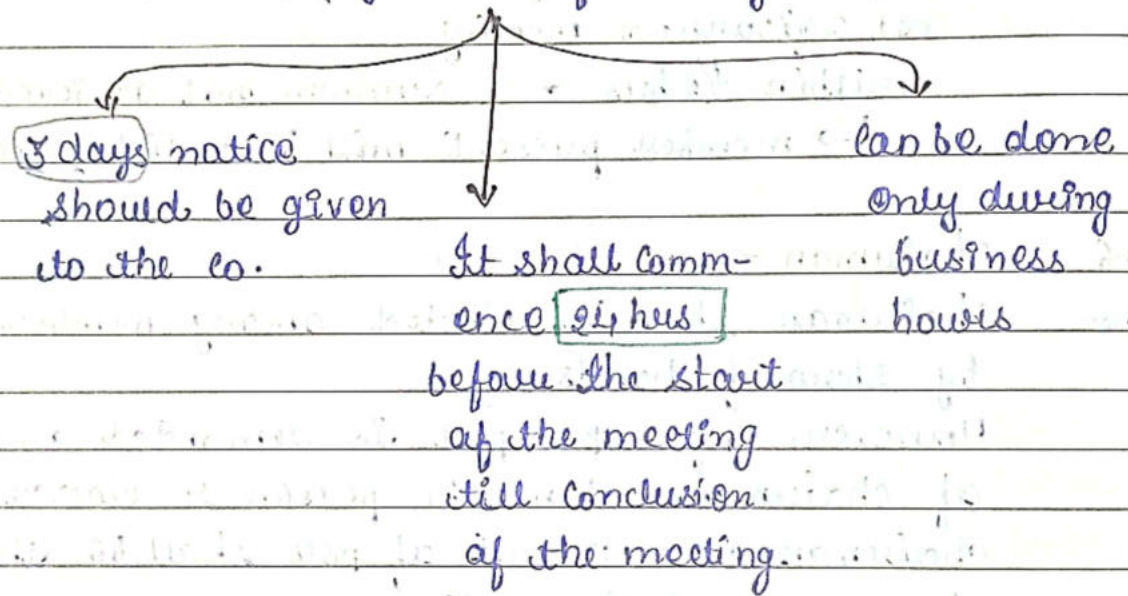 3 days notice
should be given
to the co.
It shall comm-
ence 24 hrs
before the start
of the meeting
till conclusion
of the meeting.
Can be done
only during
business
hours